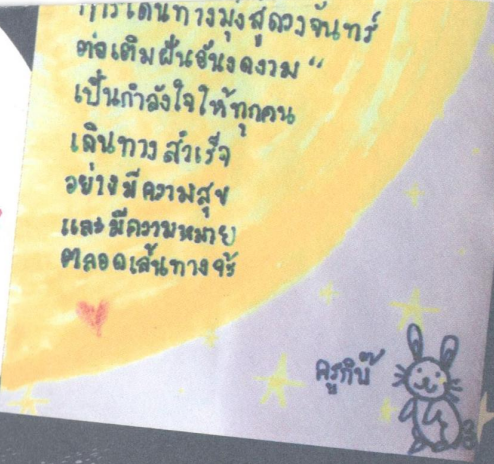 การเดินทางมุ่งสู่ดวงจันทร์
ต่อเติมฝันอันงดงาม "
เป็นกำลังใจให้ทุกคน
เดินทางสำเร็จ
อย่างมีความสุข
และมีความหมาย
ตลอดเส้นทางจ้ะ
ครูกิ๊บ